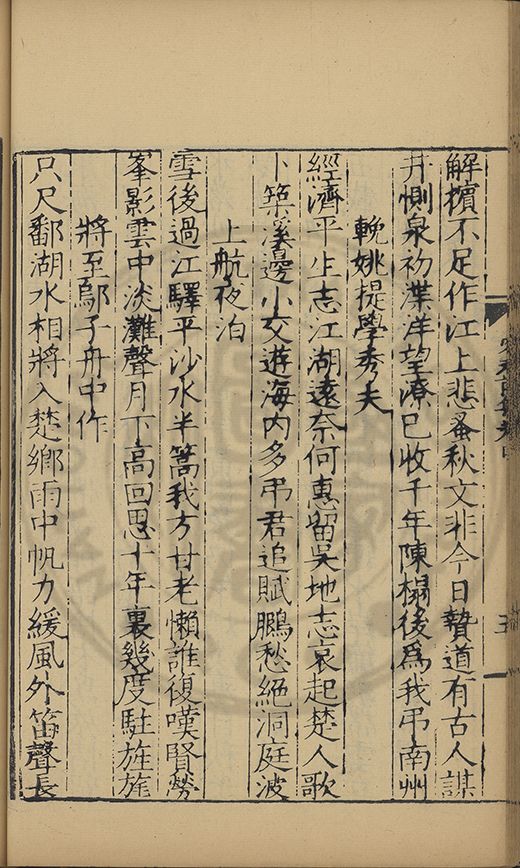 解櫝不足作江上悲蚤秋文非今日贄道有古人謀
井惻泉初渫洋望潦已收千年陳榻後爲我弔南州
輓姚提學秀夫
經濟平生志江湖遠奈何惠留吳地志哀起楚人歌
卜築溪邊小交遊海內多弔君追賦鵩愁絕洞庭波
上航夜泊
雪後過江驛平沙水半篙我方甘老懶誰復嘆賢勞
峯影雲中淡灘聲月下高回思十年裏幾度駐旌旄
將至鄔子舟中作
只尺鄱湖水相將入楚鄉雨中帆力緩風外笛聲長